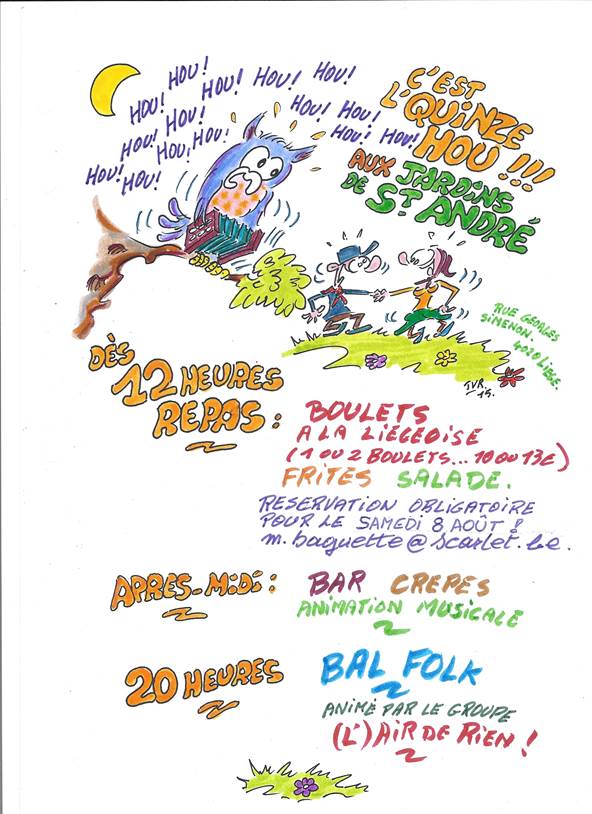 HOU! HOU! HOU! HOU!
HOU! HOU! HOU! HOU!
HOU! HOU! HOU! HOU!
HOU! HOU! HOU!
C'EST
L'QUINZE
HOU !!!
AUX JARDINS
DE ST ANDRÉ
RUE GEORGES
SIMENON.
4020 LIEGE.
GVR.
15.
DÈS
12 HEURES
REPAS :
BOULETS
A LA LIÉGEOISE
(1 OU 2 BOULETS... 10 OU 13€)
FRITES SALADE.
RESERVATION OBLIGATOIRE
POUR LE SAMEDI 8 AOÛT !
m.baguette@scarlet.be.
APRES-MIDI :
BAR CREPES
ANIMATION MUSICALE
20 HEURES
BAL FOLK
ANIMÉ PAR LE GROUPE
(L')AIR DE RIEN !